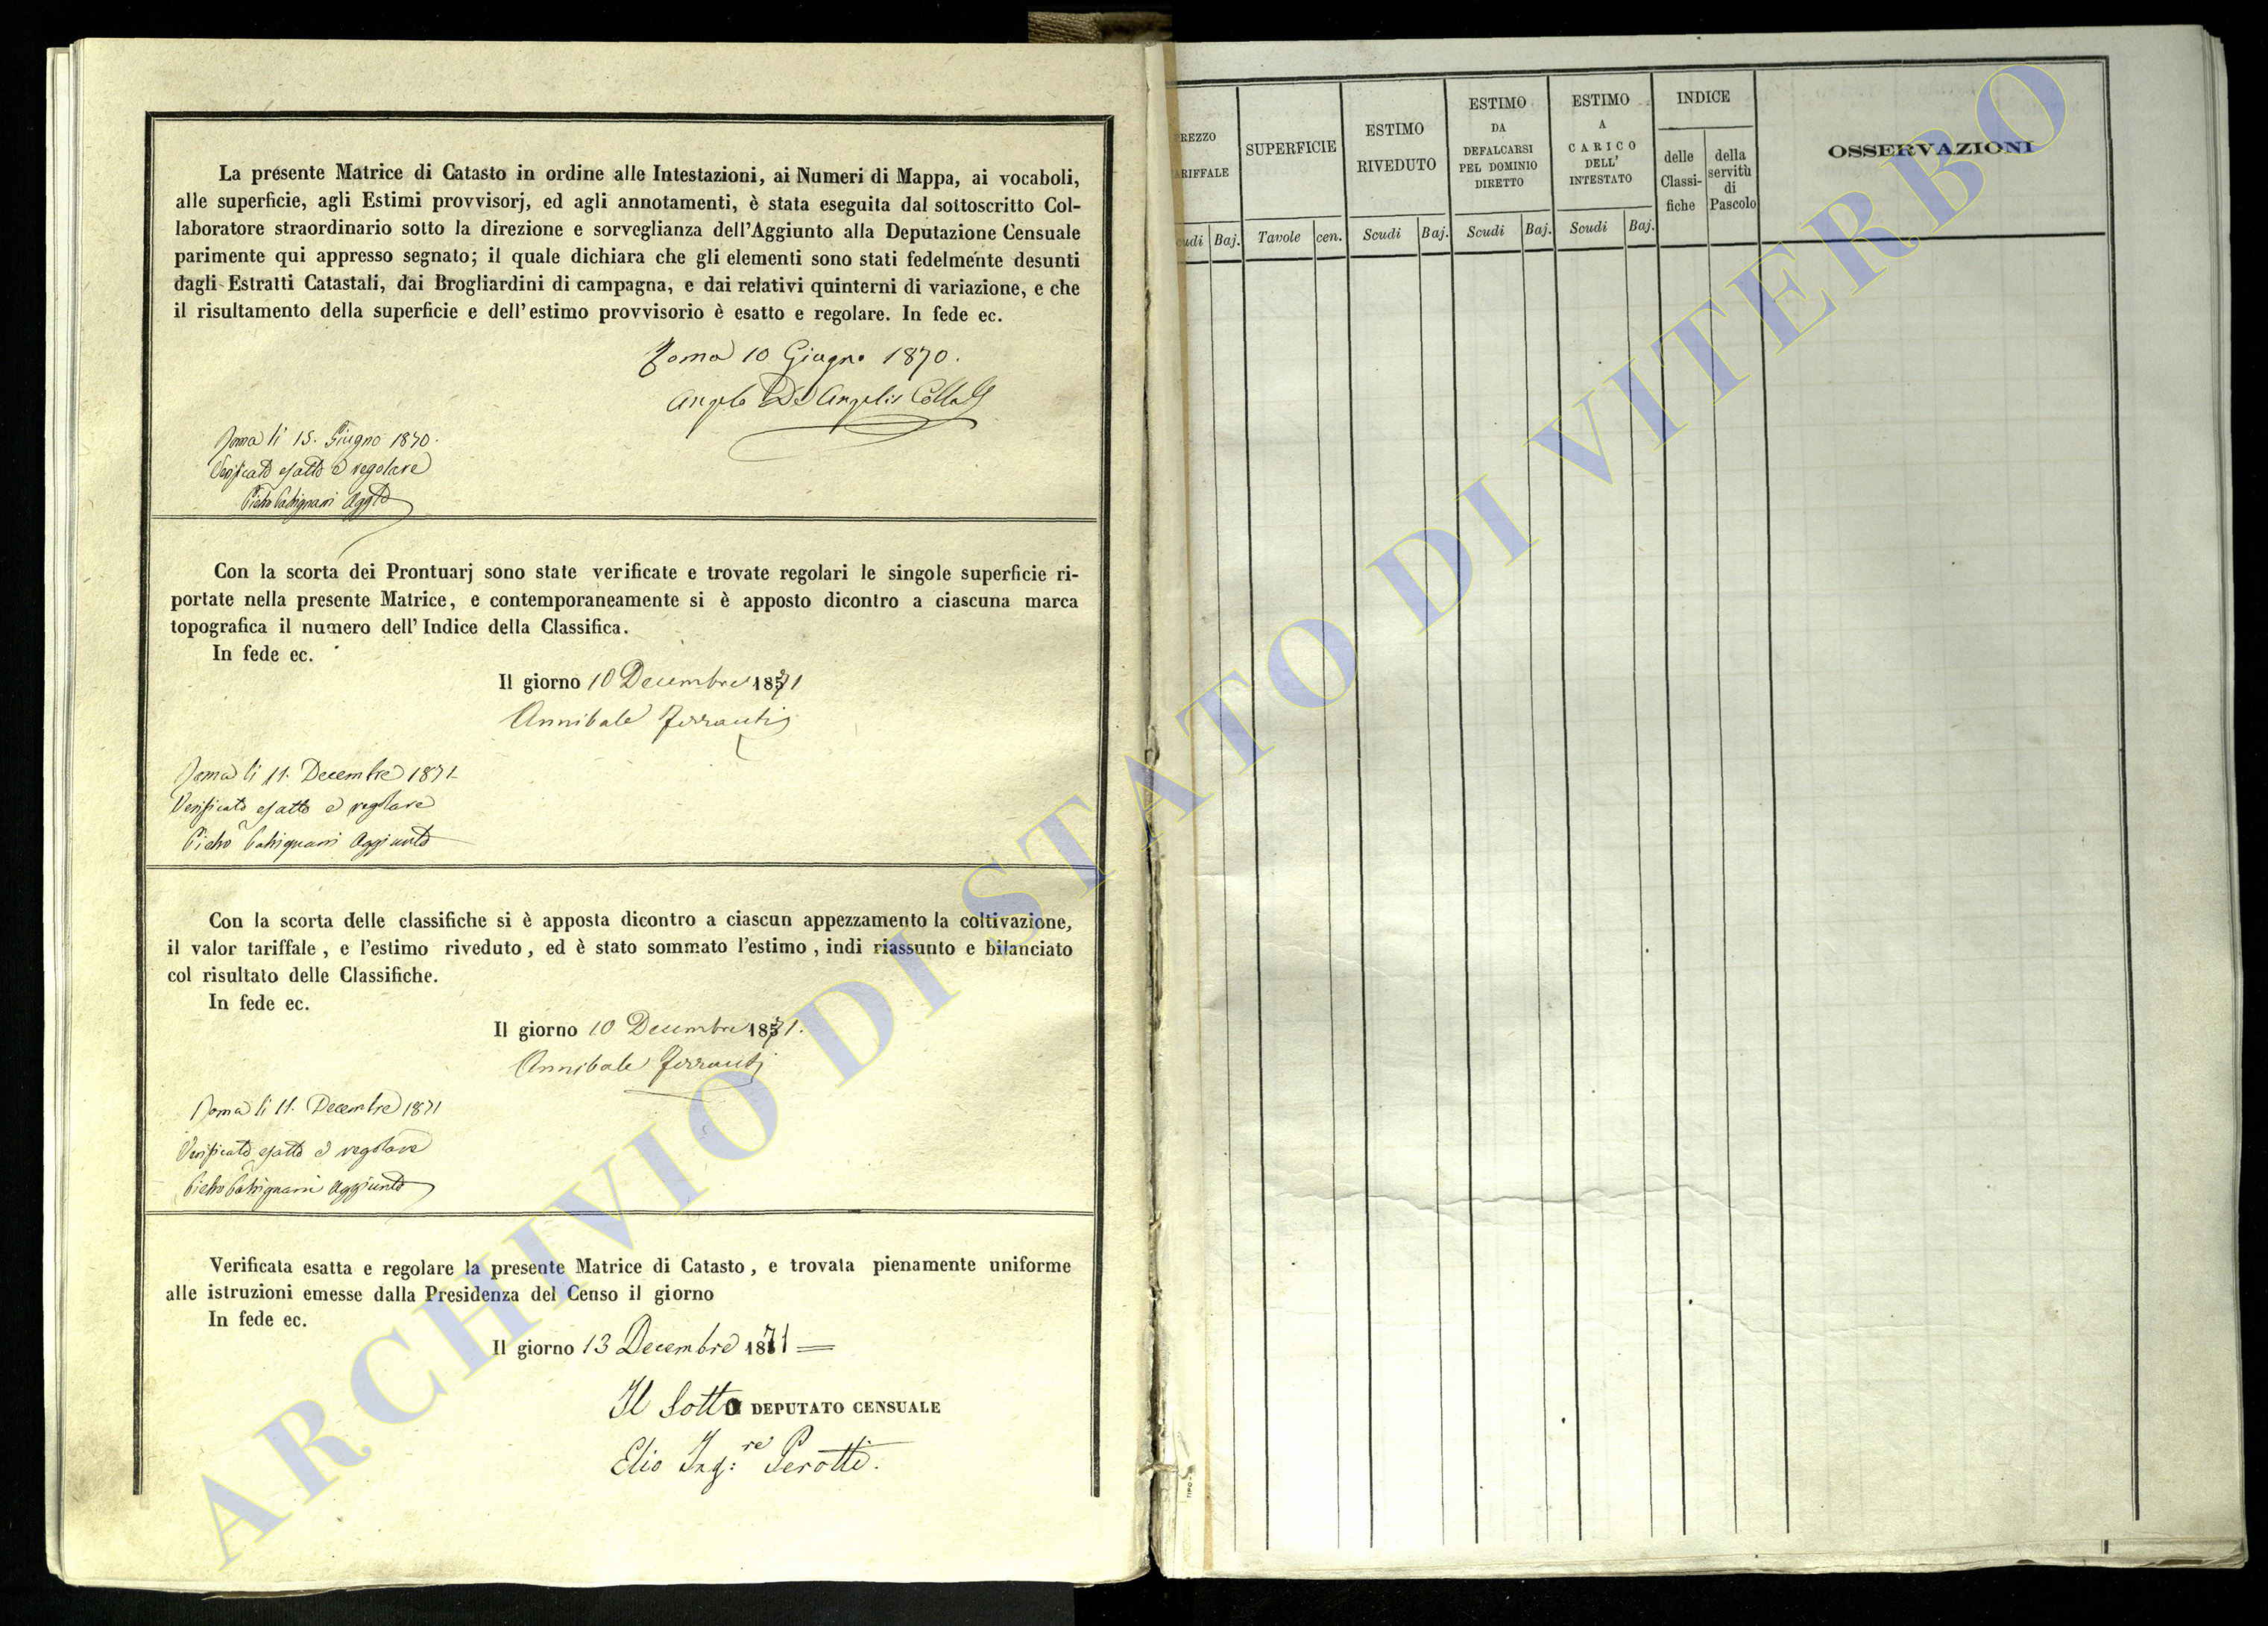 La presente Matrice di Catasto in ordine alle Intestazioni, ai Numeri di Mappa, ai vocaboli,
alle superficie, agli Estimi provvisorj, ed agli annotamenti, è stata eseguita dal sottoscritto Col-
laboratore straordinario sotto la direzione e sorveglianza dell'Aggiunto alla Deputazione Censuale
parimente qui appresso segnato; il quale dichiara che gli elementi sono stati fedelmente desunti
dagli Estratti Catastali, dai Brogliardini di campagna, e dai relativi quinterni di variazione, e che
il risultamento della superficie e dell'estimo provvisorio è esatto e regolare. In fede ec.
Roma 10 Giugno 1870.
Angelo De Angelis
Roma li 15. Giugno 1870.
Verificato esatto e regolare
Pietro Aggto
Con la scorta dei Prontuarj sono state verificate e trovate regolari le singole superficie ri-
portate nella presente Matrice, e contemporaneamente si è apposto dicontro a ciascuna marca
topografica il numero dell'Indice della Classifica.
In fede ec.
Il giorno 10 Decembre 1871
Annibale
Roma li 11. Decembre 1871
Verificato esatto e regolare
Pietro Aggiunto
Con la scorta delle classifiche si è apposta dicontro a ciascun appezzamento la coltivazione,
il valor tariffale, e l'estimo riveduto, ed è stato sommato l'estimo, indi riassunto e bilanciato
col risultato delle Classifiche.
In fede ec.
Il giorno 10 Decembre 1871.
Annibale
Roma li 11. Decembre 1871
Verificato esatto e regolare
Pietro Aggiunto
Verificata esatta e regolare la presente Matrice di Catasto, e trovata pienamente uniforme
alle istruzioni emesse dalla Presidenza del Censo il giorno
In fede ec.
Il giorno 13 Decembre 1871
Il Sotto DEPUTATO CENSUALE
Elio Ing:re Perotti.
REZZO
ARIFFALE
SUPERFICIE
ESTIMO
RIVEDUTO
ESTIMO
DA
DEFALCARSI
PEL DOMINIO
DIRETTO
ESTIMO
A
CARICO
DELL'
INTESTATO
INDICE
delle
Classi-
fiche
della
servitù
di
Pascolo
OSSERVAZIONI
udi Baj. Tavole cen. Scudi Baj. Scudi Baj. Scudi Baj.
ARCHIVIO DI STATO DI VITERBO